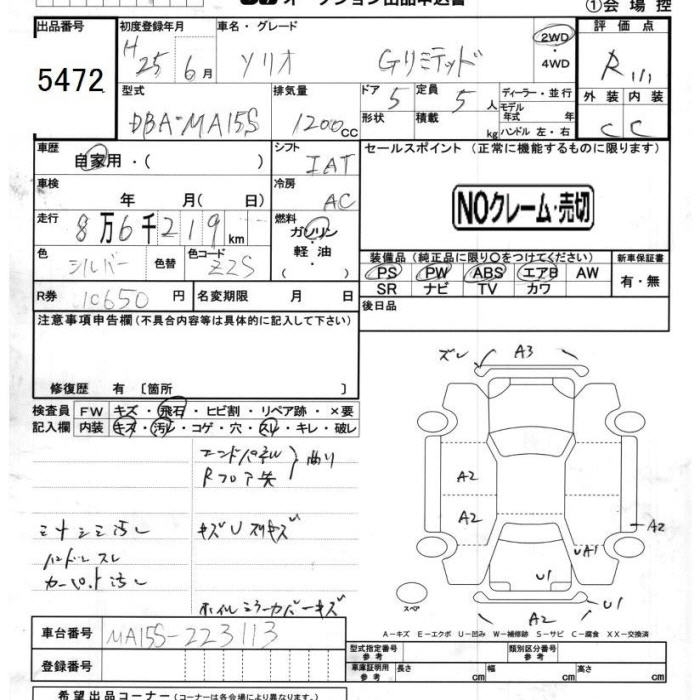 オークション出品申込書
①会場控
出品番号 初度登録年月 車名・グレード 評価点
5472
H25 6月 ソリオ Gリミテッド 2WD 4WD R
型式 排気量 ドア 定員 ディーラー・並行 外装 内装
DBA-MA15S 1200cc 5 5人 モデル年式 年
形状 積載 kg ハンドル 左・右 C C
車歴 自家用・( ) シフト IAT セールスポイント (正常に機能するものに限ります)
車検 年 月( 日) 冷房 AC
NOクレーム・売切
走行 8万6千219km 燃料 ガソリン 軽油 ・( )
色 シルバー 色替 色コード Z2S 装備品 (純正品に限り○をつけてください) 新車保証書
PS PW ABS エアB AW 有・無
SR ナビ TV カワ
R券 10650円 名変期限 月 日 後日品
注意事項申告欄 (不具合内容等は具体的に記入して下さい)
修復歴 有 〔箇所 〕
ズレ A3
検査員 FW キズ・飛石・ヒビ割・リペア跡・×要
記入欄 内装 キズ・汚レ・コゲ・穴・スレ・キレ・破レ
エンドパネル 曲り
Rフロア
A2
A2 A2
シート シミ汚レ キズU スリキズ
ハンドル スレ UA1
カーペット汚レ U1
ホイルミラーカバーキズ U1
スペア A2
A-キズ E-エクボ U-凹み W-補修跡 S-サビ C-腐食 XX-交換済
車台番号 MA15S-223113
型式指定番号 参考 類別区分番号 参考
登録番号 車庫証明用 参考 長さ cm 幅 cm 高さ cm
希望出品コーナー (コーナーは各会場により異なります。)